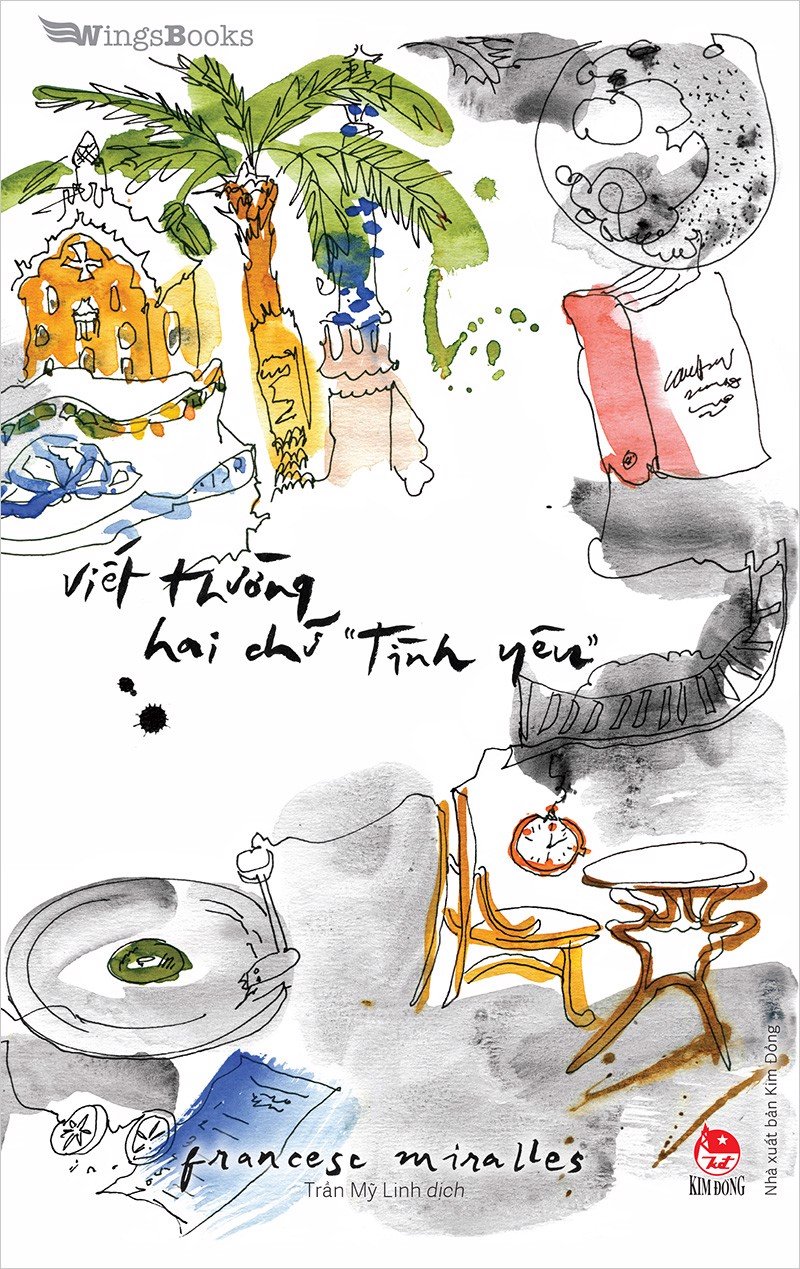 WingsBooks
viết thường
hai chữ "Tình yêu"
francesc miralles
Trần Mỹ Linh dịch
KIM ĐỒNG
Nhà xuất bản Kim Đồng